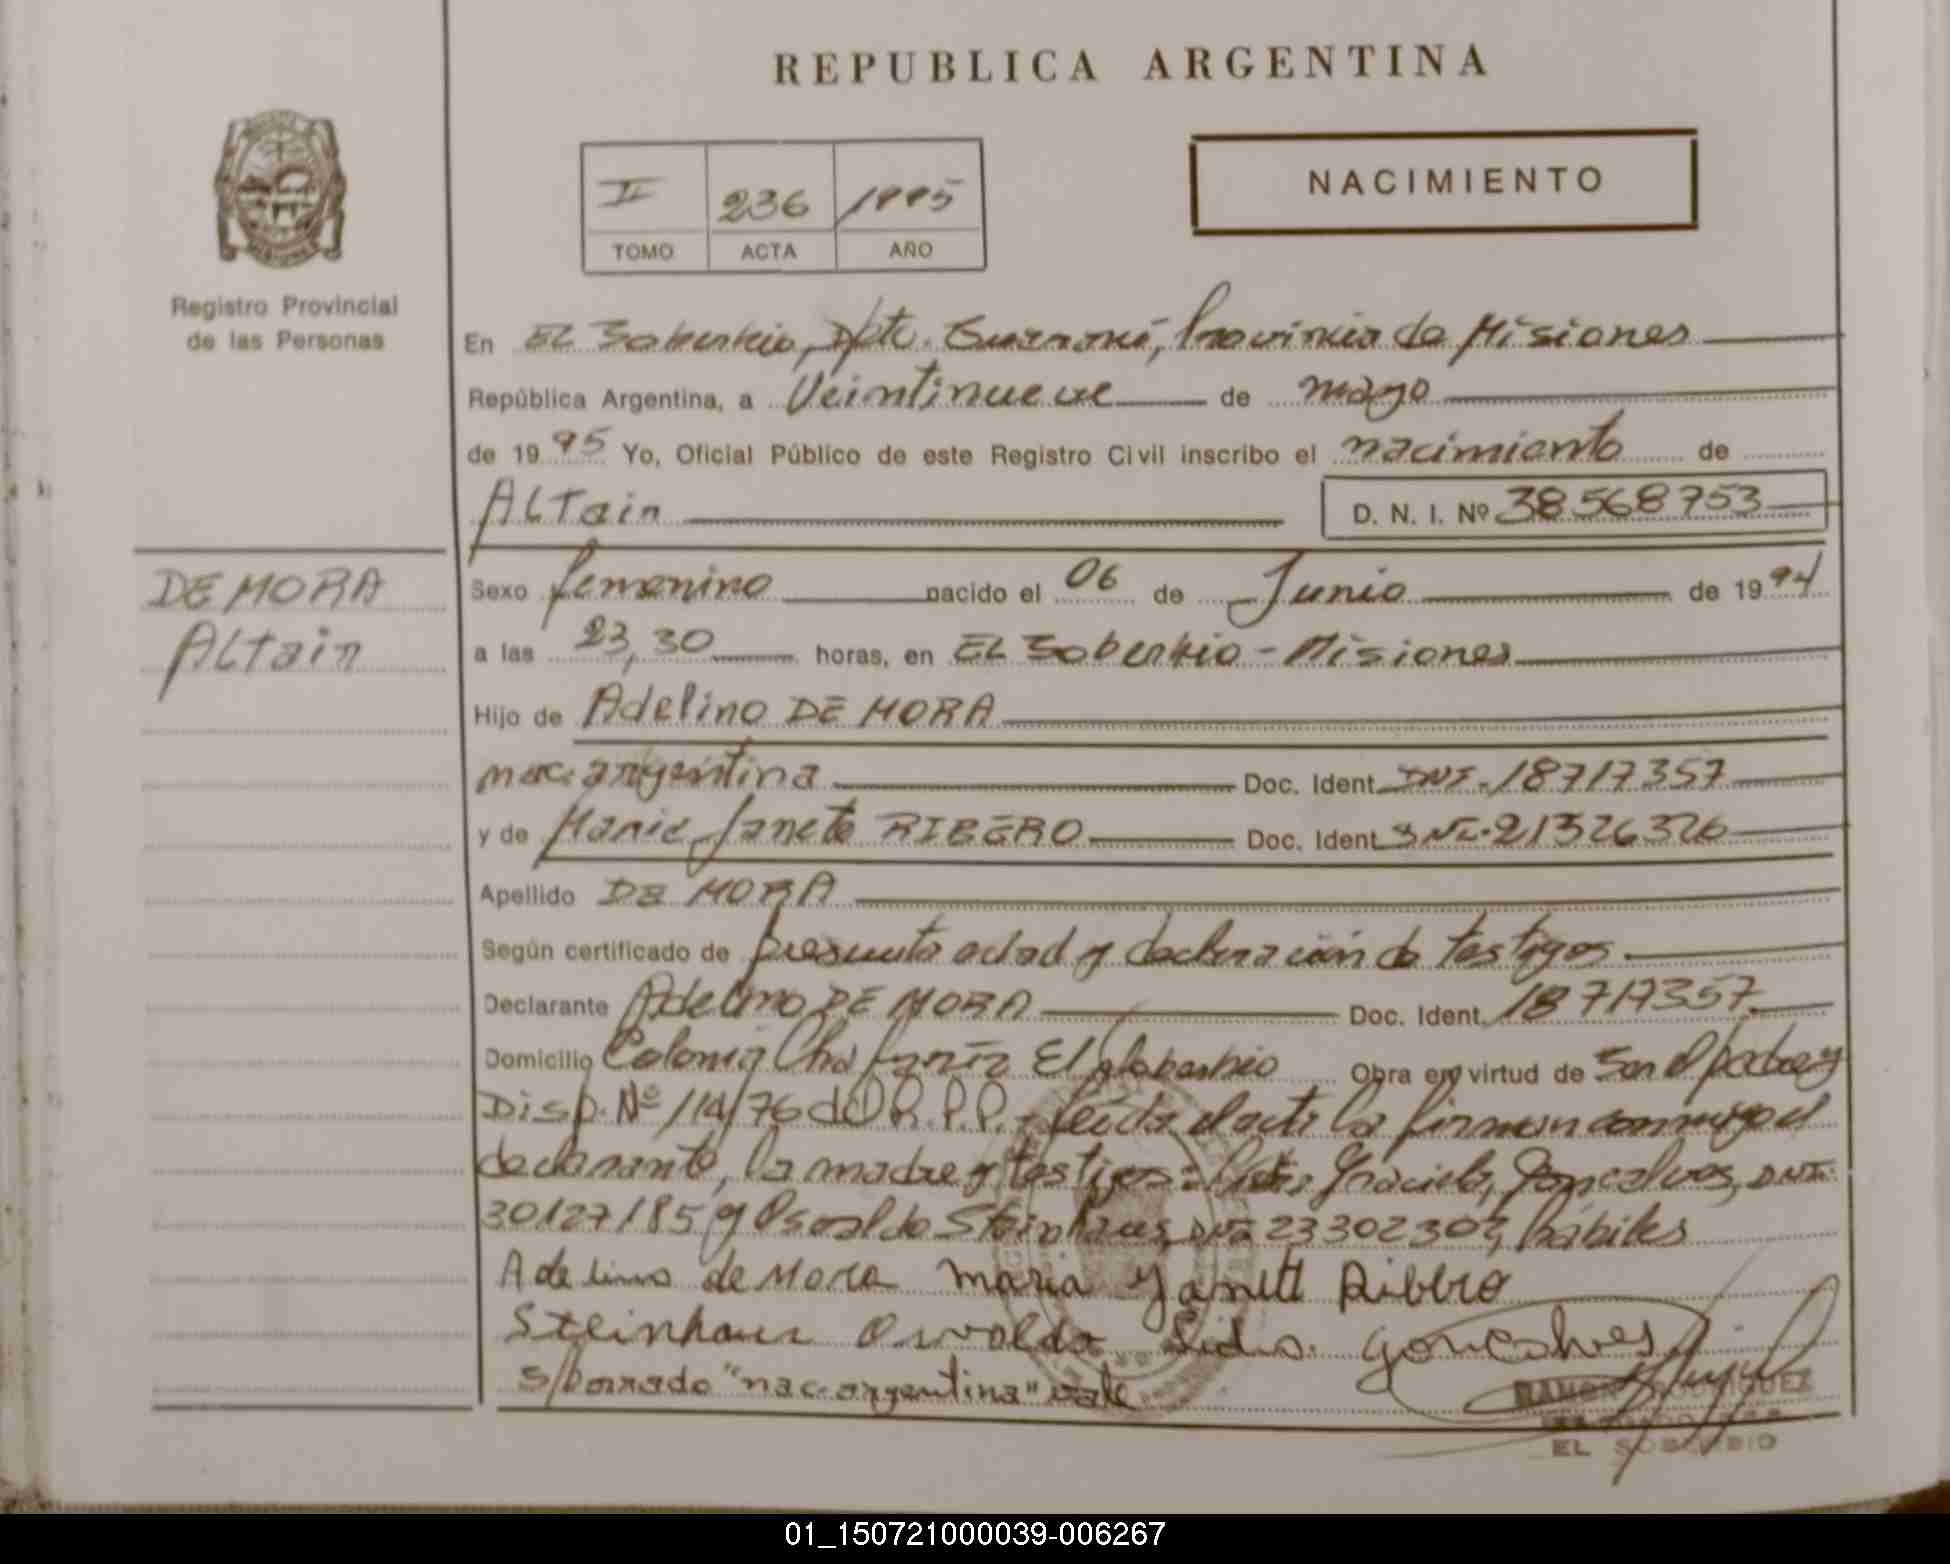 REPUBLICA ARGENTINA
II 236 1995
TOMO ACTA AÑO
NACIMIENTO
Registro Provincial
de las Personas
DE MORA
Altain
En El Soberbio, Dpto. Guaraní, Provincia de Misiones
República Argentina, a Veintinueve de mayo
de 1995 Yo, Oficial Público de este Registro Civil inscribo el nacimiento de
ALTain D. N. I. Nº 38568753
Sexo femenino nacido el 06 de Junio de 1994
a las 23,30 horas, en El Soberbio - Misiones
Hijo de Adelino DE MORA
nac. argentina Doc. Ident. DNI. 18717357
y de Maria Janete RIBERO Doc. Ident. DNI. 21326326
Apellido DE MORA
Según certificado de presunta edad y declaración de testigos
Declarante Adelino DE MORA Doc. Ident. 18717357
Domicilio Colonia Chafariz El Soberbio Obra en virtud de ser el padre y
Disp. Nº 114/76 del R.P.P. - Leída el acta la firman conmigo el
declarante, la madre y testigos: Graciela Goncalves, DNI.
30127185 y Osvaldo Steinhaus, DNI 23302307, hábiles
Adelino de Mora Maria Yanett Ribero
Steinhaus Osvaldo Goncalves
s/borrado "nac. argentina" vale
RAMON RODRIGUEZ
EL SOBERBIO
01_150721000039-006267